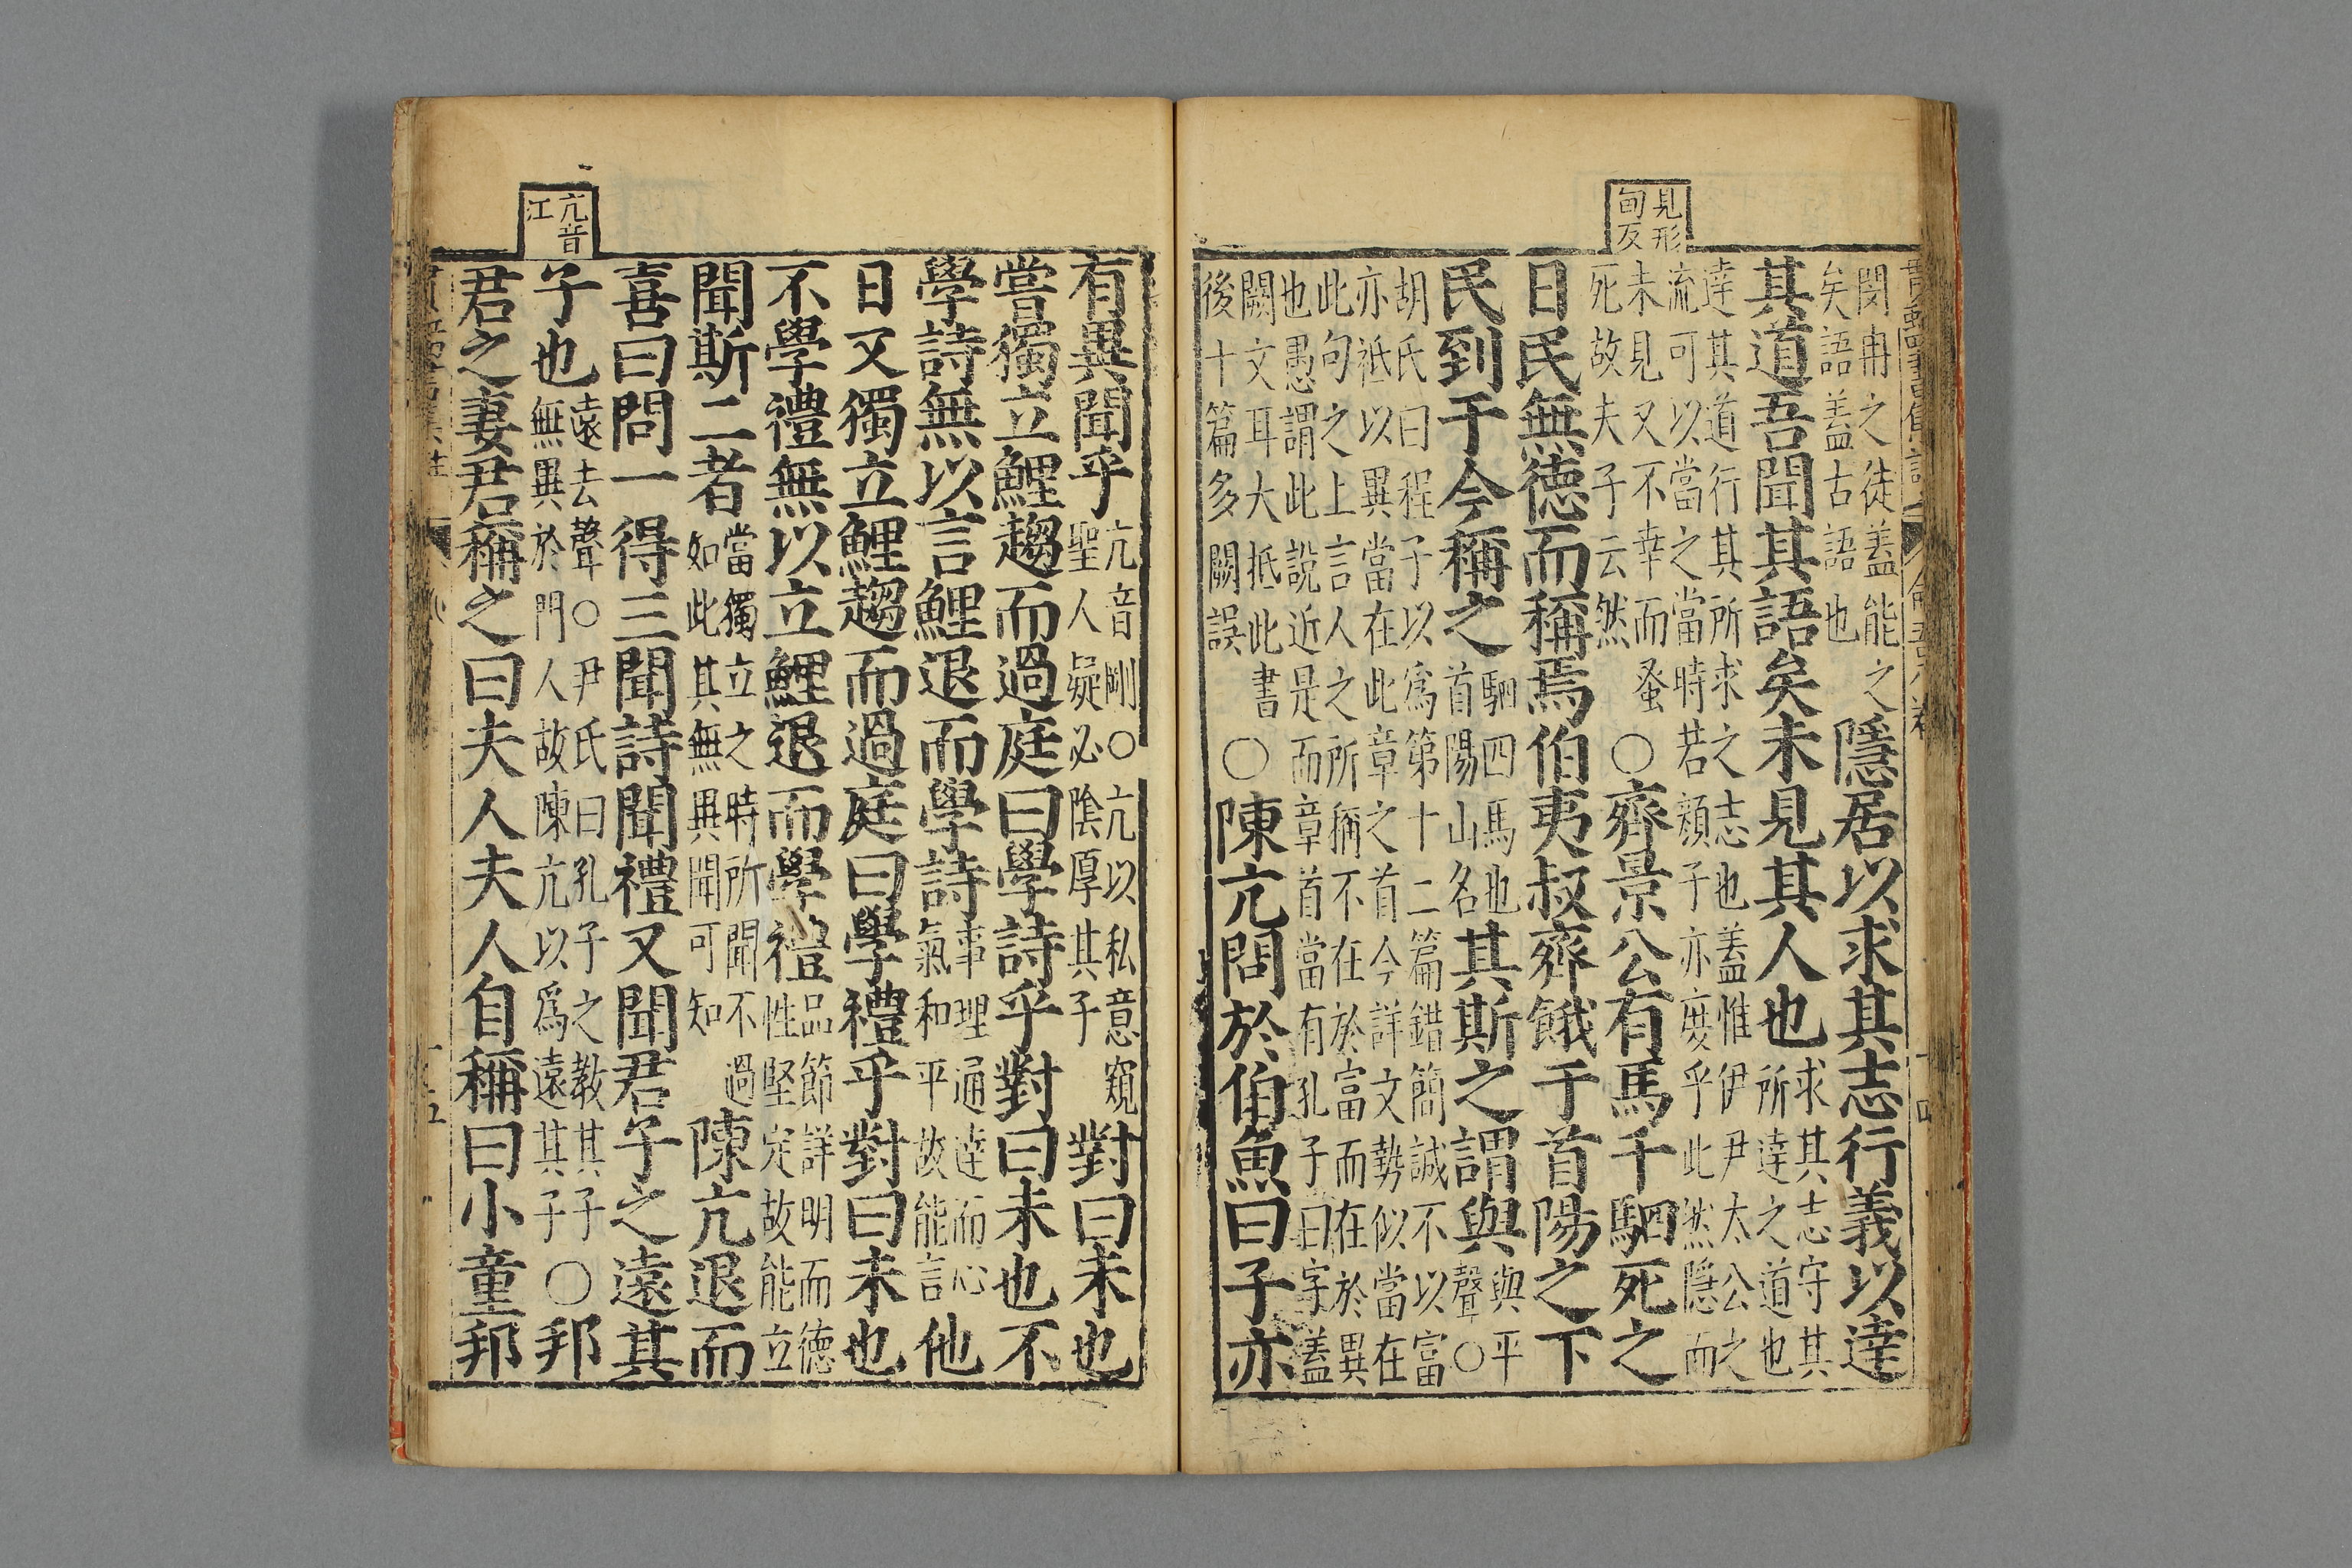 見形
甸反
閔冉之徒蓋能之
矣語蓋古語也
隱居以求其志行義以達
其道吾聞其語矣未見其人也
求其志守其
所達之道也
達其道行其所求之志也蓋惟伊尹太公之
流可以當之當時若顏子亦庶乎此然隱而
未見又不幸而蚤
死故夫子云然
○齊景公有馬千駟死之
日民無德而稱焉伯夷叔齊餓于首陽之下
民到于今稱之
駟四馬也
首陽山名
其斯之謂與
與平
聲○
胡氏曰程子以爲第十二篇錯簡誠不以富
亦祗以異當在此章之首今詳文勢似當在
此句之上言人之所稱不在於富而在於異
也愚謂此說近是而章首當有孔子曰字蓋
闕文耳大抵此書
後十篇多闕誤
○陳亢問於伯魚曰子亦
亢音
江
有異聞乎
亢音剛○亢以私意窺
聖人疑必陰厚其子
對曰未也
嘗獨立鯉趨而過庭曰學詩乎對曰未也不
學詩無以言鯉退而學詩
事理通達而心
氣和平故能言
他
日又獨立鯉趨而過庭曰學禮乎對曰未也
不學禮無以立鯉退而學禮
品節詳明而德
性堅定故能立
聞斯二者
當獨立之時所聞不過
如此其無異聞可知
陳亢退而
喜曰問一得三聞詩聞禮又聞君子之遠其
子也
遠去聲○尹氏曰孔子之敎其子
無異於門人故陳亢以爲遠其子
○邦
君之妻君稱之曰夫人夫人自稱曰小童邦